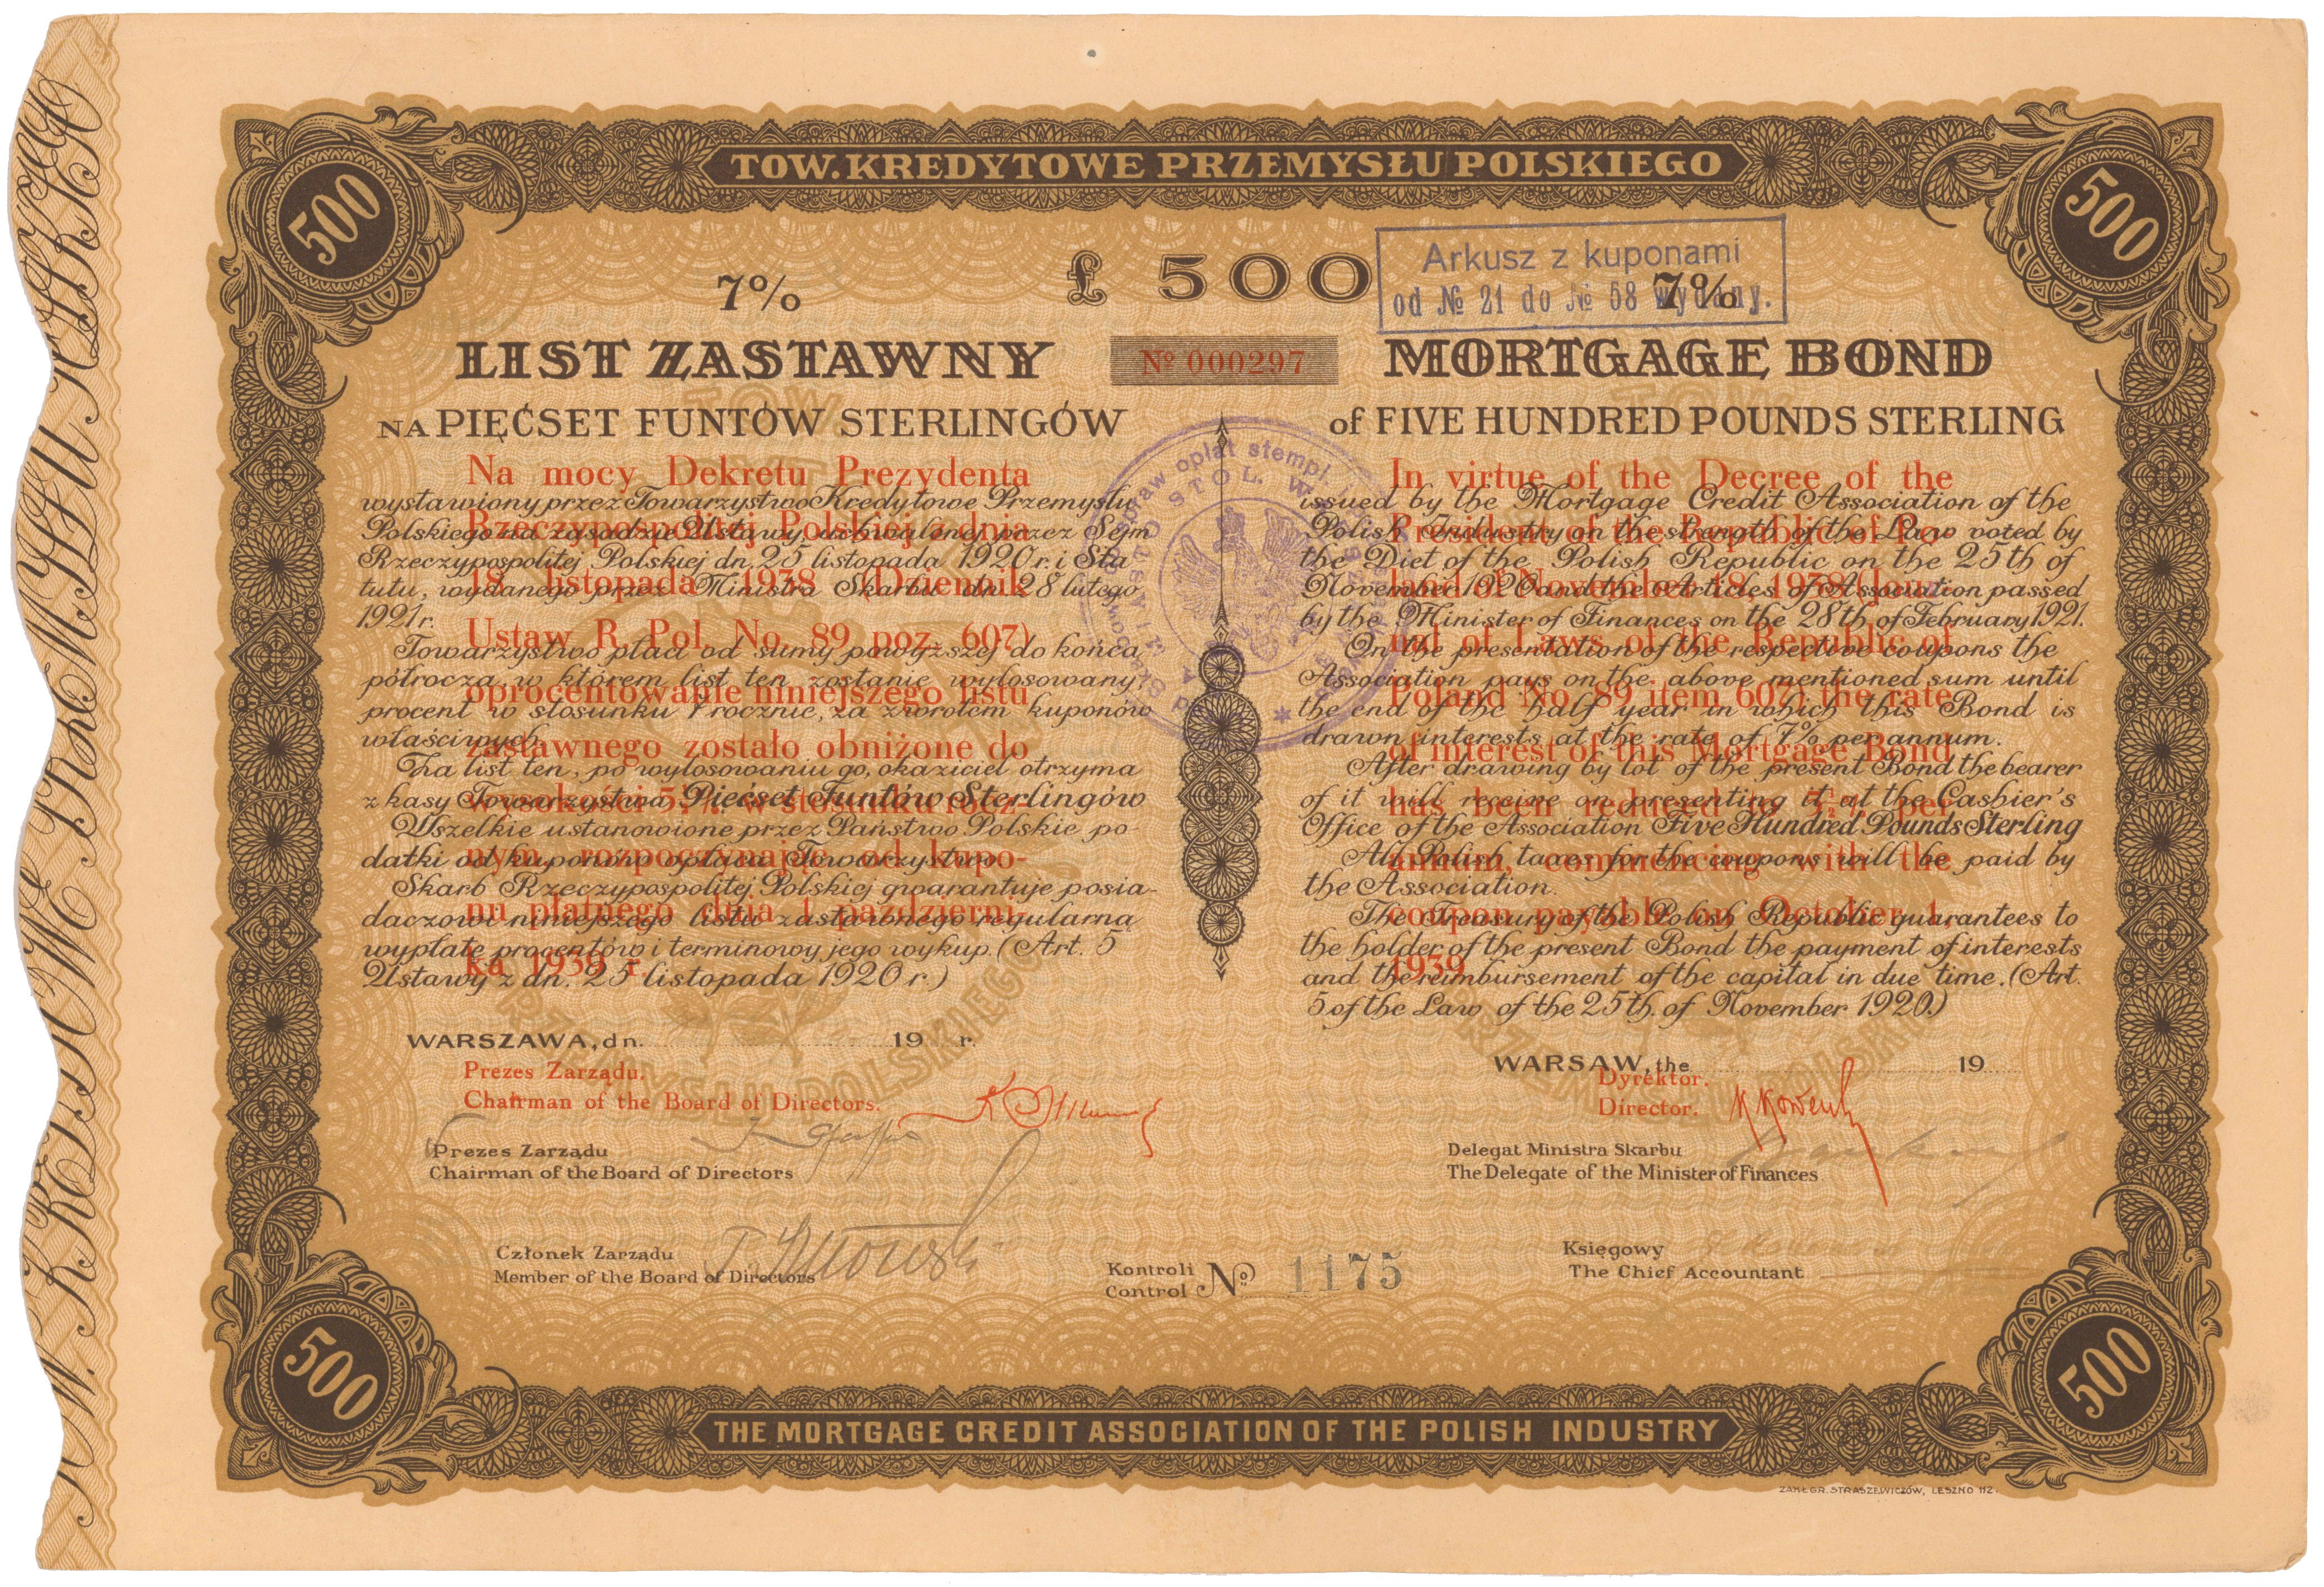 TOW. KREDYTOWE PRZEMYSŁU POLSKIEGO
500
500
£ 500
Arkusz z kuponami
od № 21 do № 58 wydany.
7%
7%
LIST ZASTAWNY
№ 000297
MORTGAGE BOND
NA PIĘĆSET FUNTÓW STERLINGÓW
of FIVE HUNDRED POUNDS STERLING
wystawiony przez Towarzystwo Kredytowe Przemysłu
Polskiego na zasadzie Ustawy uchwalonej przez Sejm
Rzeczypospolitej Polskiej dn. 25 listopada 1920 r. i Sta
tutu, wydanego przez Ministra Skarbu dn 28 lutego
1921 r.
Towarzystwo płaci od sumy powyższej do końca
półrocza, w którem list ten zostanie wylosowany,
procent w stosunku 7 rocznie, za zwrotem kuponów
właściwych.
Za list ten, po wylosowaniu go, okaziciel otrzyma
z kasy Towarzystwa Pięćset Funtów Sterlingów
Wszelkie ustanowione przez Państwo Polskie po-
datki od kuponów opłaca Towarzystwo.
Skarb Rzeczypospolitej Polskiej gwarantuje posia-
daczowi niniejszego listu zastawnego regularną
wypłatę procentów i terminowy jego wykup. (Art. 5
Ustawy z dn. 25 listopada 1920 r.)
Na mocy Dekretu Prezydenta
Rzeczypospolitej Polskiej z dnia
18 listopada 1938 (Dziennik
Ustaw R. Pol. No. 89 poz. 607)
oprocentowanie niniejszego listu
zastawnego zostało obniżone do
wysokości 5½% w stosunku rocz-
nym, rozpoczynając od kupo-
nu płatnego dnia 1 październi-
ka 1939 r.
issued by the Mortgage Credit Association of the
Polish Industry on the strength of the Law voted by
the Diet of the Polish Republic on the 25th of
November 1920 and the Articles of Association passed
by the Minister of Finances on the 28th of February 1921.
On the presentation of the respective coupons the
Association pays on the above mentioned sum until
the end of the half year in which this Bond is
drawn interests at the rate of 7% per annum.
After drawing by lot of the present Bond the bearer
of it will receive on presenting it at the Cashier's
Office of the Association Five Hundred Pounds Sterling
All Polish taxes for the coupons will be paid by
the Association.
The Treasury of the Polish Republic guarantees to
the holder of the present Bond the payment of interests
and the reimbursement of the capital in due time. (Art.
5 of the Law of the 25th. of November 1920.)
In virtue of the Decree of the
President of the Republic of Po-
land of November 18, 1938 (Jour-
nal of Laws of the Republic of
Poland No. 89 item 607) the rate
of interest of this Mortgage Bond
has been reduced to 5½% per
annum, commencing with the
coupon payable on October 1,
1939
WARSZAWA, dn. 19 r.
WARSAW, the 19
Prezes Zarządu.
Chairman of the Board of Directors.
Dyrektor.
Director.
Prezes Zarządu
Chairman of the Board of Directors
Delegat Ministra Skarbu
The Delegate of the Minister of Finances
Członek Zarządu
Member of the Board of Directors
Kontroli
Control No. 1175
Księgowy
The Chief Accountant
500
500
THE MORTGAGE CREDIT ASSOCIATION OF THE POLISH INDUSTRY
ZAKŁ. GR. STRASZEWICZÓW, LESZNO 112.